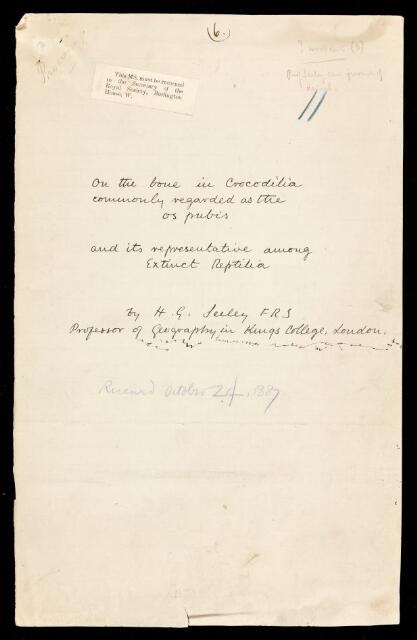 (6.)
This MS. must be returned
to the Secretary of the
Royal Society, Burlington
House, W.
11
On the bone in Crocodilia
commonly regarded as the
os pubis
and its representative among
Extinct Reptilia
by H. G. Seeley FRS
Professor of Geography in Kings College, London.
Received October 24, 1887